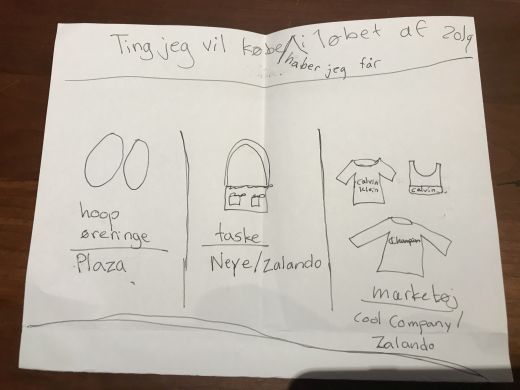 Ting jeg vil købe/i løbet af 2019
haber jeg får
hoop
øreringe
Plaza
taske
Neye/Zalando
calvin
klein
calvin
Champion
mærketøj
cool company/
Zalando